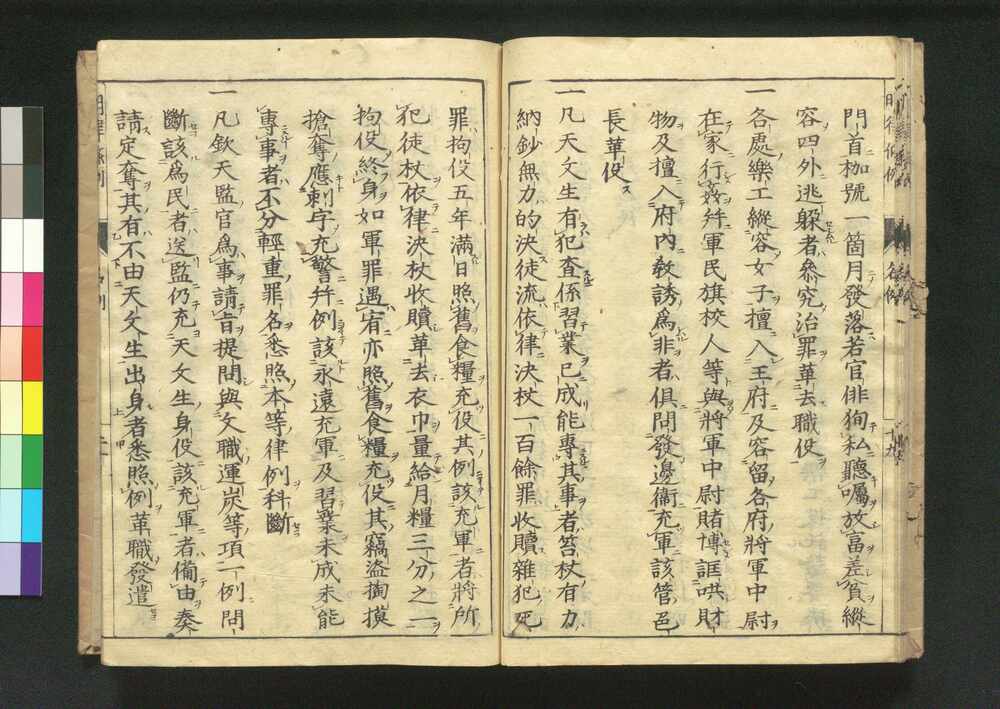 門首枷號一箇月發落若官俳狥私聽囑放富差貧縱
容四外逃躱者叅究治罪革去職役
一各處樂工縱容女子擅入王府及容留各府將軍中尉
在家行姦幷軍民旗校人等與將軍中尉賭博誆哄財
物及擅入府內敎誘爲非者俱問發邊衞充軍該管邑
長革役
一凡天文生有犯査係習業已成能專其事者笞杖有力
納鈔無力的決徒流依律決杖一百餘罪收贖雜犯死
罪拘役五年滿日照舊食糧充役其例該充軍者將所
犯徒杖依律決杖收贖革去衣巾量給月糧三分之一
拘役終身如軍罪遇宥亦照舊食糧充役其竊盜掏摸
搶奪應刺字充警幷例該永遠充軍及習業未成未能
專事者不分輕重罪名悉照本等律例科斷
一凡欽天監官爲事請旨提問與文職運炭等項一例問
斷該爲民者送監仍充天文生身役該充軍者備由奏
請定奪其有不由天文生出身者悉照例革職發遣